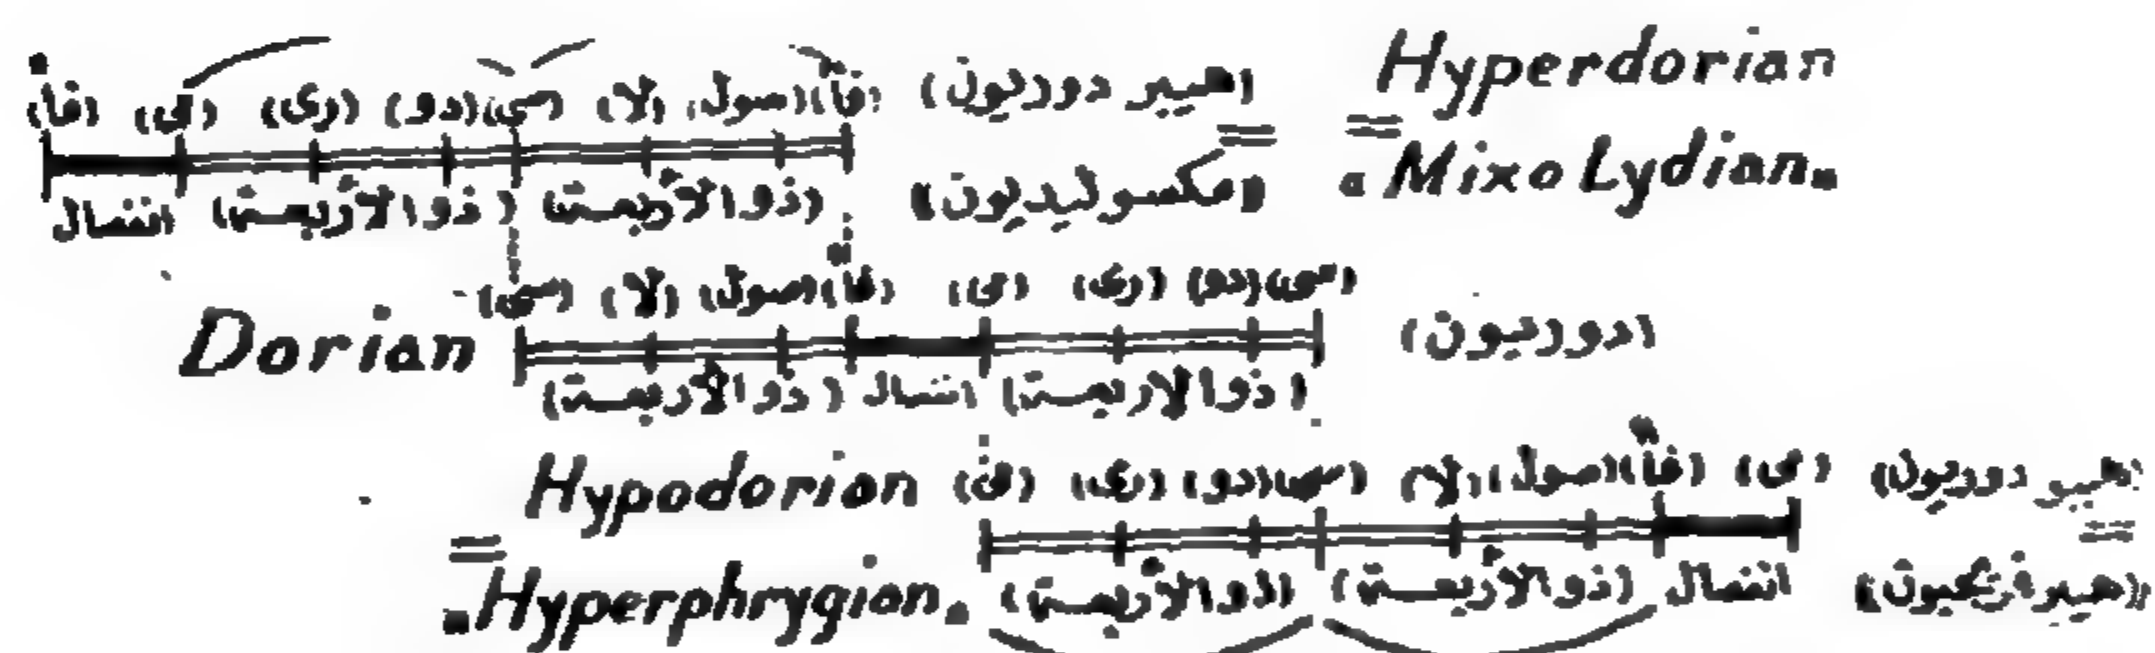 (فا) (مى) (رى) (دو) (سى) (لا) (صول) (فا) (هيبر دوريون) = = Hyperdorian
انفصال (ذو الأربعة) (ذو الأربعة) (مكسوليديون) Mixo Lydian
Dorian (سى) (لا) (صول) (فا) (مى) (رى) (دو) (سى) (دوريون)
(ذو الأربعة) انفصال (ذو الأربعة)
Hypodorian (مى) (رى) (دو) (سى) (لا) (صول) (فا) (مى) (هيبو دوريون)
= Hyperphrygian (ذو الأربعة) (ذو الأربعة) انفصال = (هيبر فريجيون)